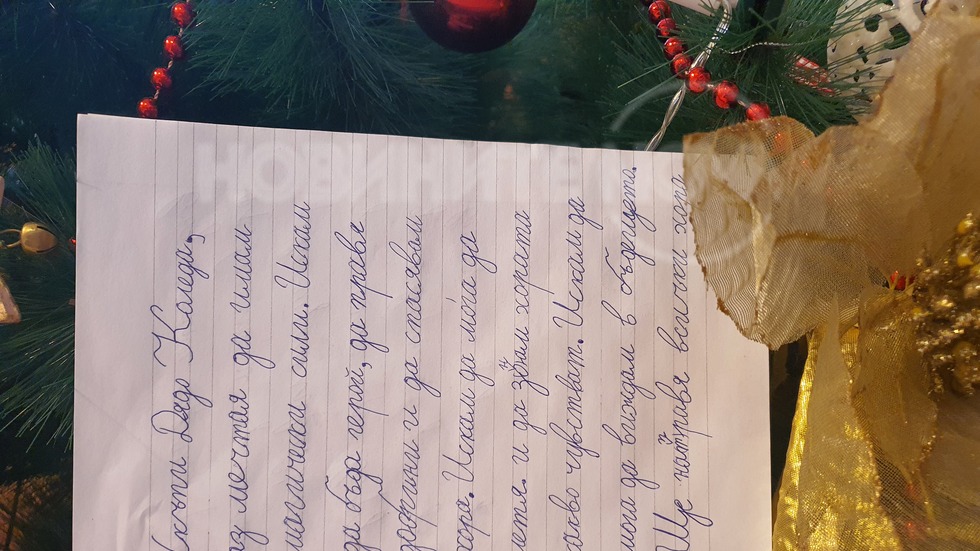 Скъпи Дядо Коледа,
аз мечтая да имам
магически сили. Искам
да бъда герой, да правя
добрини и да спасявам
хора. Искам да мо́га да
летя. и да знам хората
какво чувстват. Искам да
мога да виждам в бъдещето.
Ще направя всички хора